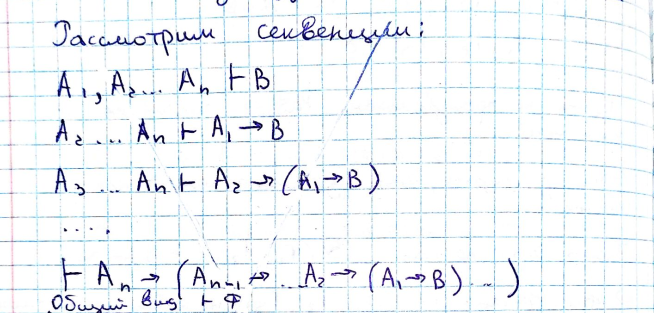 Рассмотрим секвенции:
A₁, A₂... Aₙ ⊢ B
A₂ ... Aₙ ⊢ A₁ → B
A₃ ... Aₙ ⊢ A₂ → (A₁ → B)
....
⊢ Aₙ → (Aₙ₋₁ → ... A₂ → (A₁ → B) ...)
Общий вид ⊢ Φ